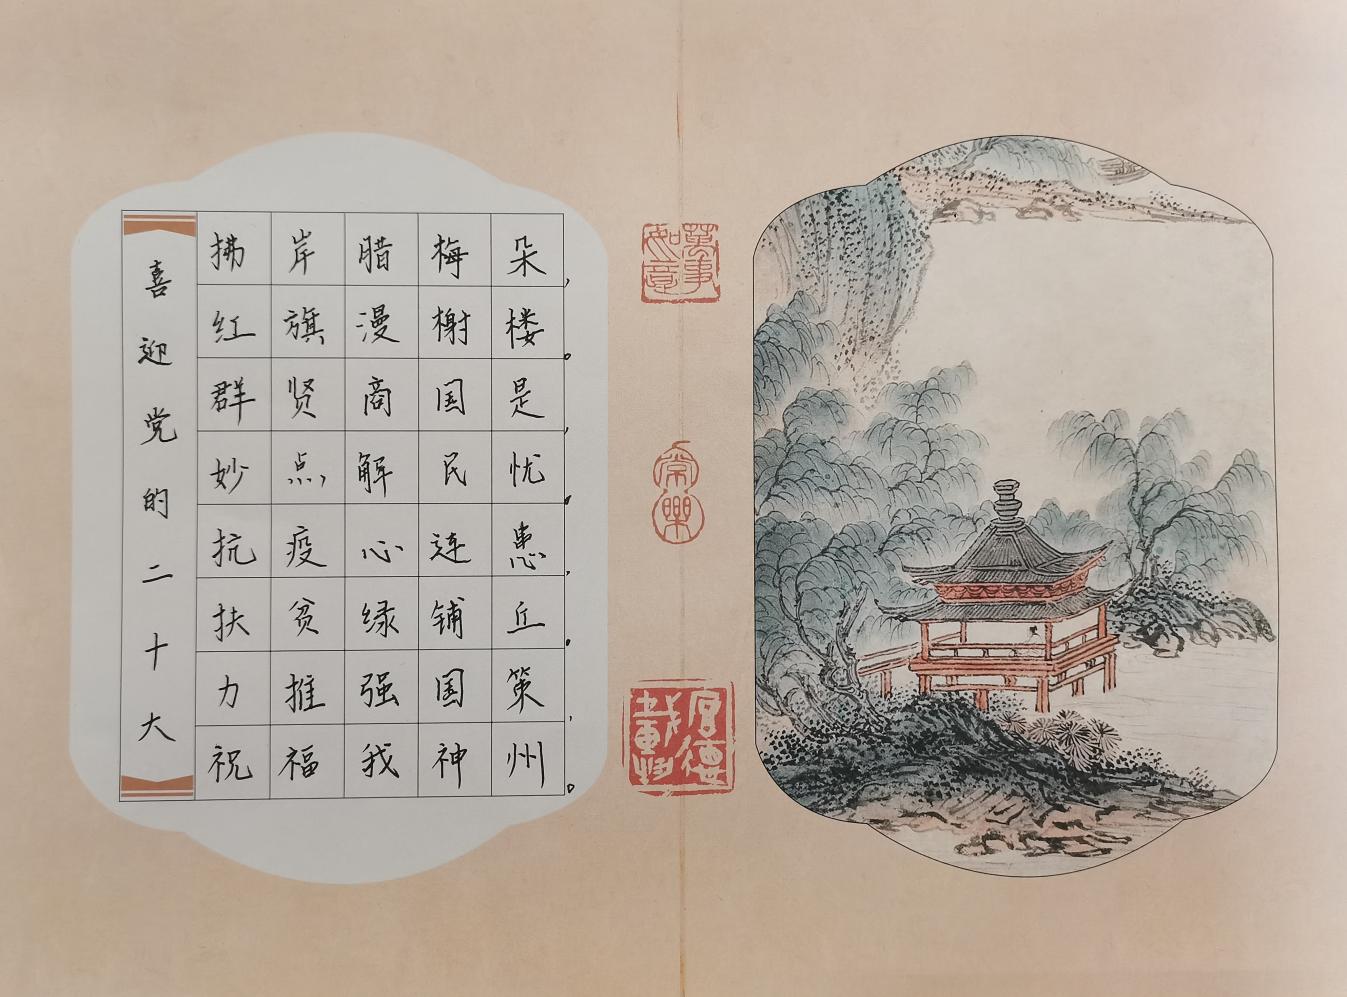 喜迎党的二十大
拂岸腊梅朵，
红旗漫榭楼。
群贤商国是，
妙点，解民忧。
抗疫心连患，
扶贫绿铺丘。
力推强国策，
祝福我神州。
萬事如意
常樂
厚德載物